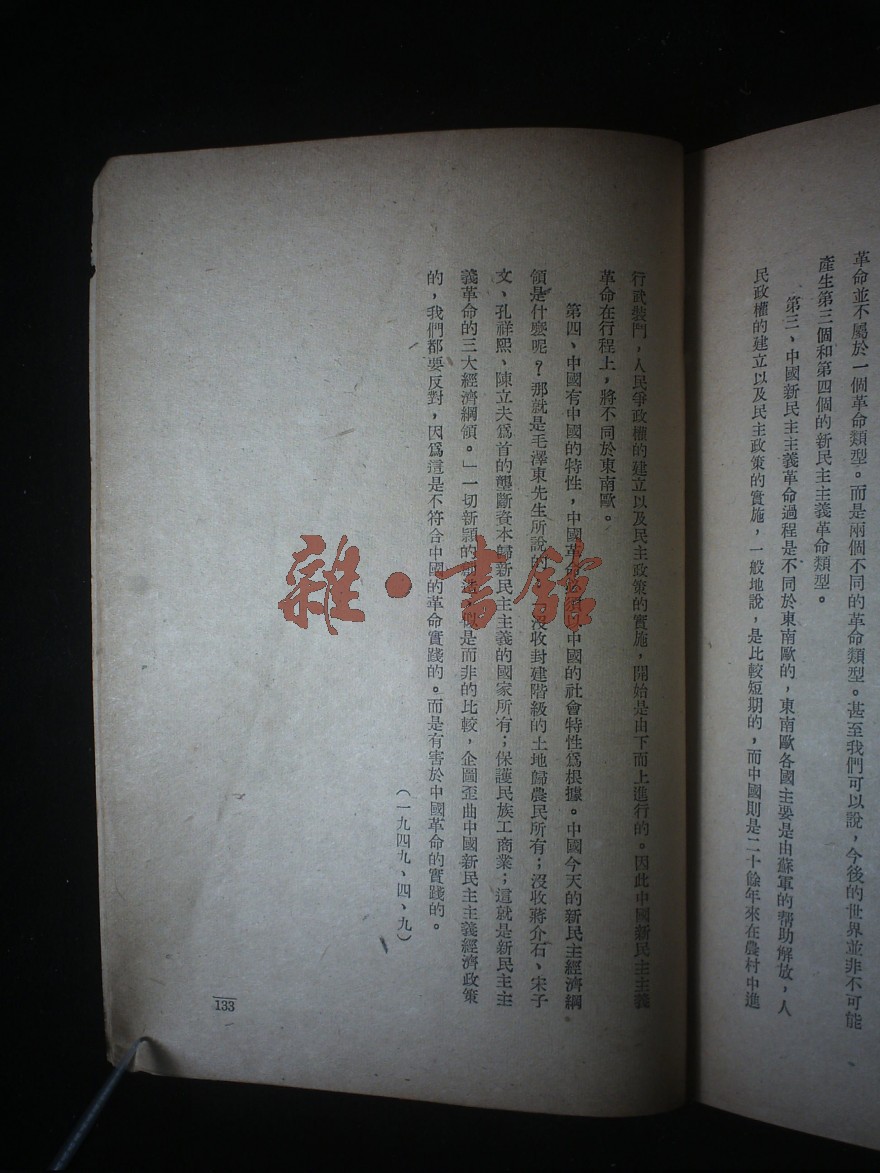 革命並不屬於一個革命類型。而是兩個不同的革命類型。甚至我們可以說，今後的世界並非不可能
產生第三個和第四個的新民主主義革命類型。
第三、中國新民主主義革命過程是不同於東南歐的，東南歐各國主要是由蘇軍的幫助解放，人
民政權的建立以及民主政策的實施，一般地說，是比較短期的，而中國則是二十餘年來在農村中進
行武裝鬥，人民爭政權的建立以及民主政策的實施，開始是由下而上進行的。因此中國新民主主義
革命在行程上，將不同於東南歐。
第四、中國有中國的特性，中國革命必須以中國的社會特性爲根據。中國今天的新民主經濟綱
領是什麼呢？那就是毛澤東先生所說的沒收封建階級的土地歸農民所有；沒收蔣介石、宋子
文、孔祥熙、陳立夫爲首的壟斷資本歸新民主主義的國家所有；保護民族工商業；這就是新民主主
義革命的三大經濟綱領。」一切新穎的是而非的比較，企圖歪曲中國新民主主義經濟政策
的，我們都要反對，因爲這是不符合中國的革命實踐的。而是有害於中國革命的實踐的。
（一九四九、四、九）
133
雜·書館